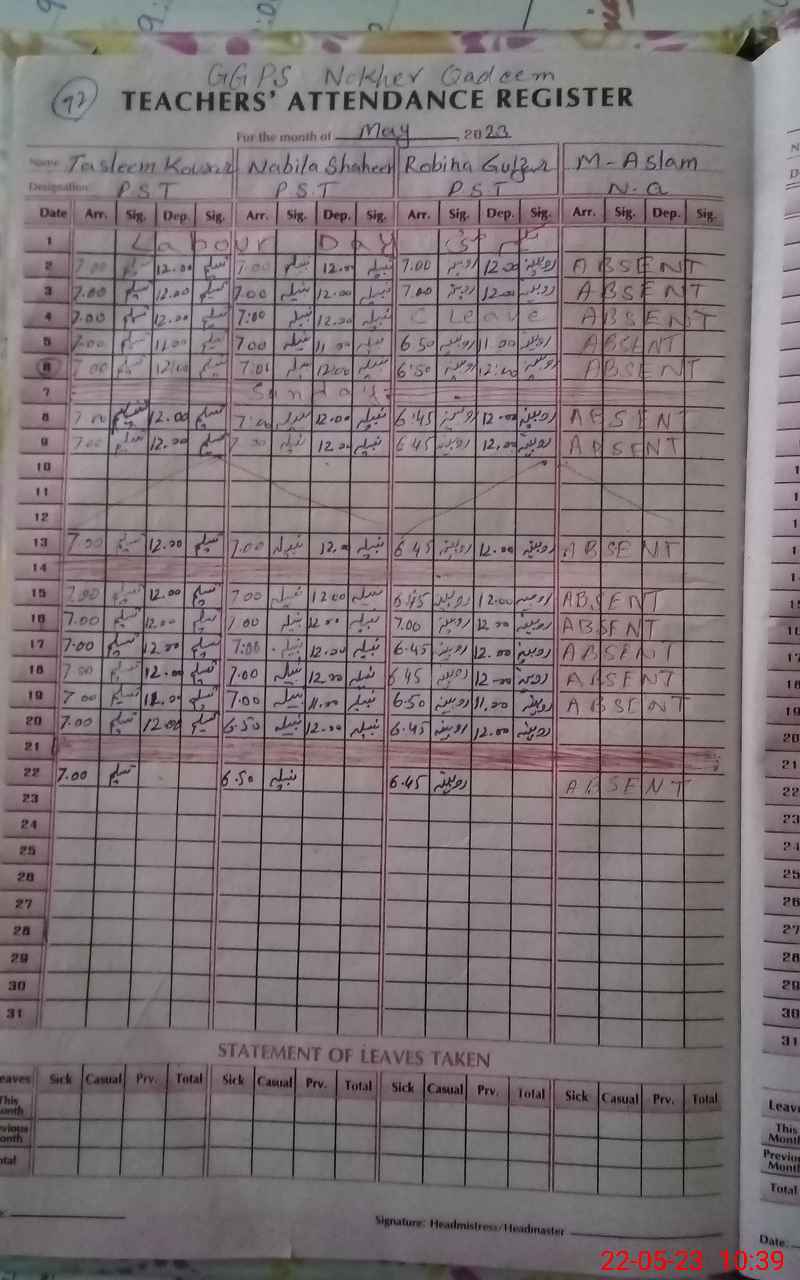 GGPS Nokher Qadeem
97
TEACHERS' ATTENDANCE REGISTER
For the month of May, 2023
Name: Tasleem Kousar Nabila Shaheen Robina Gulzar M-Aslam
Designation: PST PST PST N-Q
Date Arr. Sig. Dep. Sig. Arr. Sig. Dep. Sig. Arr. Sig. Dep. Sig. Arr. Sig. Dep. Sig.
1 Labour Day
2 7.00 تسلیم 12.00 تسلیم 7.00 نبیلہ 12.00 نبیلہ 7.00 روبینہ 12.00 روبینہ ABSENT
3 7.00 تسلیم 12.00 تسلیم 7.00 نبیلہ 12.00 نبیلہ 7.00 روبینہ 12.00 روبینہ ABSENT
4 7.00 تسلیم 12.00 تسلیم 7:00 نبیلہ 12.00 نبیلہ C Leave ABSENT
5 7.00 تسلیم 11.00 تسلیم 7.00 نبیلہ 11.00 نبیلہ 6.50 روبینہ 11.00 روبینہ ABSENT
6 7.00 تسلیم 12:00 تسلیم 7:01 نبیلہ 12:00 نبیلہ 6.50 روبینہ 12:00 روبینہ ABSENT
7 Sunday
8 7.00 تسلیم 12.00 تسلیم 7:00 نبیلہ 12.00 نبیلہ 6.45 روبینہ 12.00 روبینہ ABSENT
9 7.00 تسلیم 12.00 تسلیم 7.00 نبیلہ 12.00 نبیلہ 6.45 روبینہ 12.00 روبینہ ABSENT
10
11
12
13 7.00 تسلیم 12.00 تسلیم 7.00 نبیلہ 12.00 نبیلہ 6.45 روبینہ 12.00 روبینہ ABSENT
14
15 7.00 تسلیم 12.00 تسلیم 7.00 نبیلہ 12.00 نبیلہ 6.45 روبینہ 12.00 روبینہ ABSENT
16 7.00 تسلیم 12.00 تسلیم 7.00 نبیلہ 12.00 نبیلہ 7.00 روبینہ 12.00 روبینہ ABSENT
17 7.00 تسلیم 12.00 تسلیم 7:00 نبیلہ 12.00 نبیلہ 6.45 روبینہ 12.00 روبینہ ABSENT
18 7.00 تسلیم 12.00 تسلیم 7.00 نبیلہ 12.00 نبیلہ 6.45 روبینہ 12.00 روبینہ ABSENT
19 7.00 تسلیم 11.00 تسلیم 7.00 نبیلہ 11.00 نبیلہ 6.50 روبینہ 11.00 روبینہ ABSENT
20 7.00 تسلیم 12.00 تسلیم 6.50 نبیلہ 12.00 نبیلہ 6.45 روبینہ 12.00 روبینہ
21
22 7.00 تسلیم 6.50 نبیلہ 6.45 روبینہ ABSENT
23
24
25
26
27
28
29
30
31
STATEMENT OF LEAVES TAKEN
eaves Sick Casual Prv. Total Sick Casual Prv. Total Sick Casual Prv. Total Sick Casual Prv. Total
This onth
evious onth
otal
Signature: Headmistress/Headmaster
Leave
This Mont
Previou Mont
Total
Date:
22-05-23 10:39